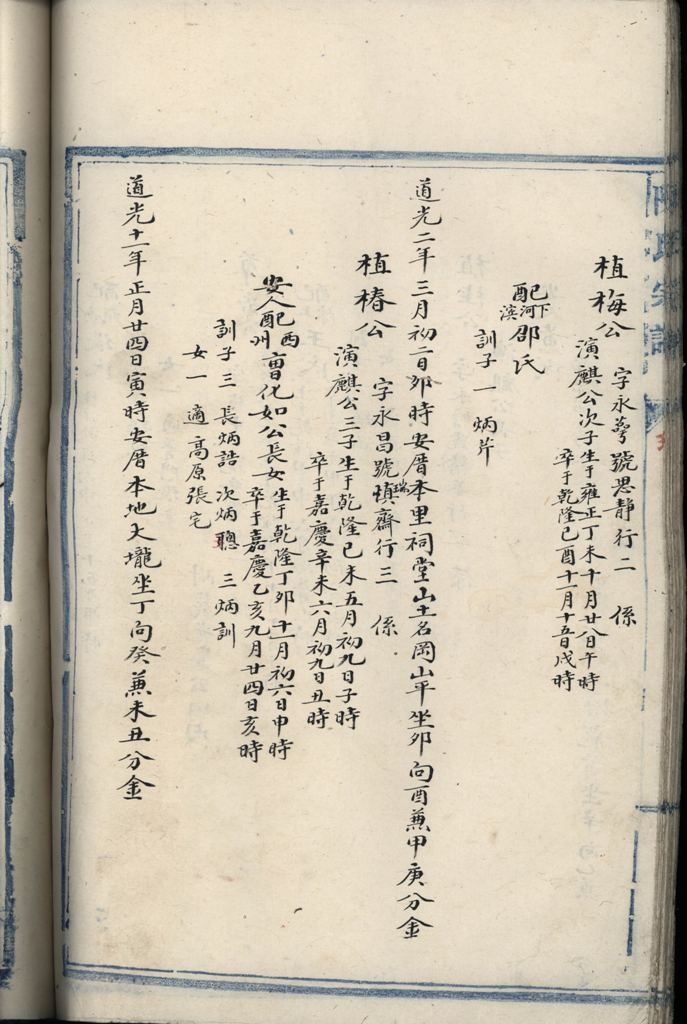 植梅公 字永萼號思靜行二 係
演麒公次子生于雍正丁未十月廿八日午時
卒于乾隆己酉十一月十五日戌時
配下河濱邵氏
訓子一 炳芹
道光二年三月初二日卯時安厝本里祠堂山土名岡山平坐卯向酉兼甲庚分金
植椿公 字永昌號瑞槙齋行三 係
演麒公三子生于乾隆己未五月初九日子時
卒于嘉慶辛未六月初九日丑時
安人配西州曹化如公長女生于乾隆丁卯十一月初六日申時
卒于嘉慶乙亥九月廿四日亥時
訓子三 長炳誥 次炳聰 三炳訓
女一 適高原張宅
道光十一年正月廿四日寅時安厝本地大壠坐丁向癸兼未丑分金